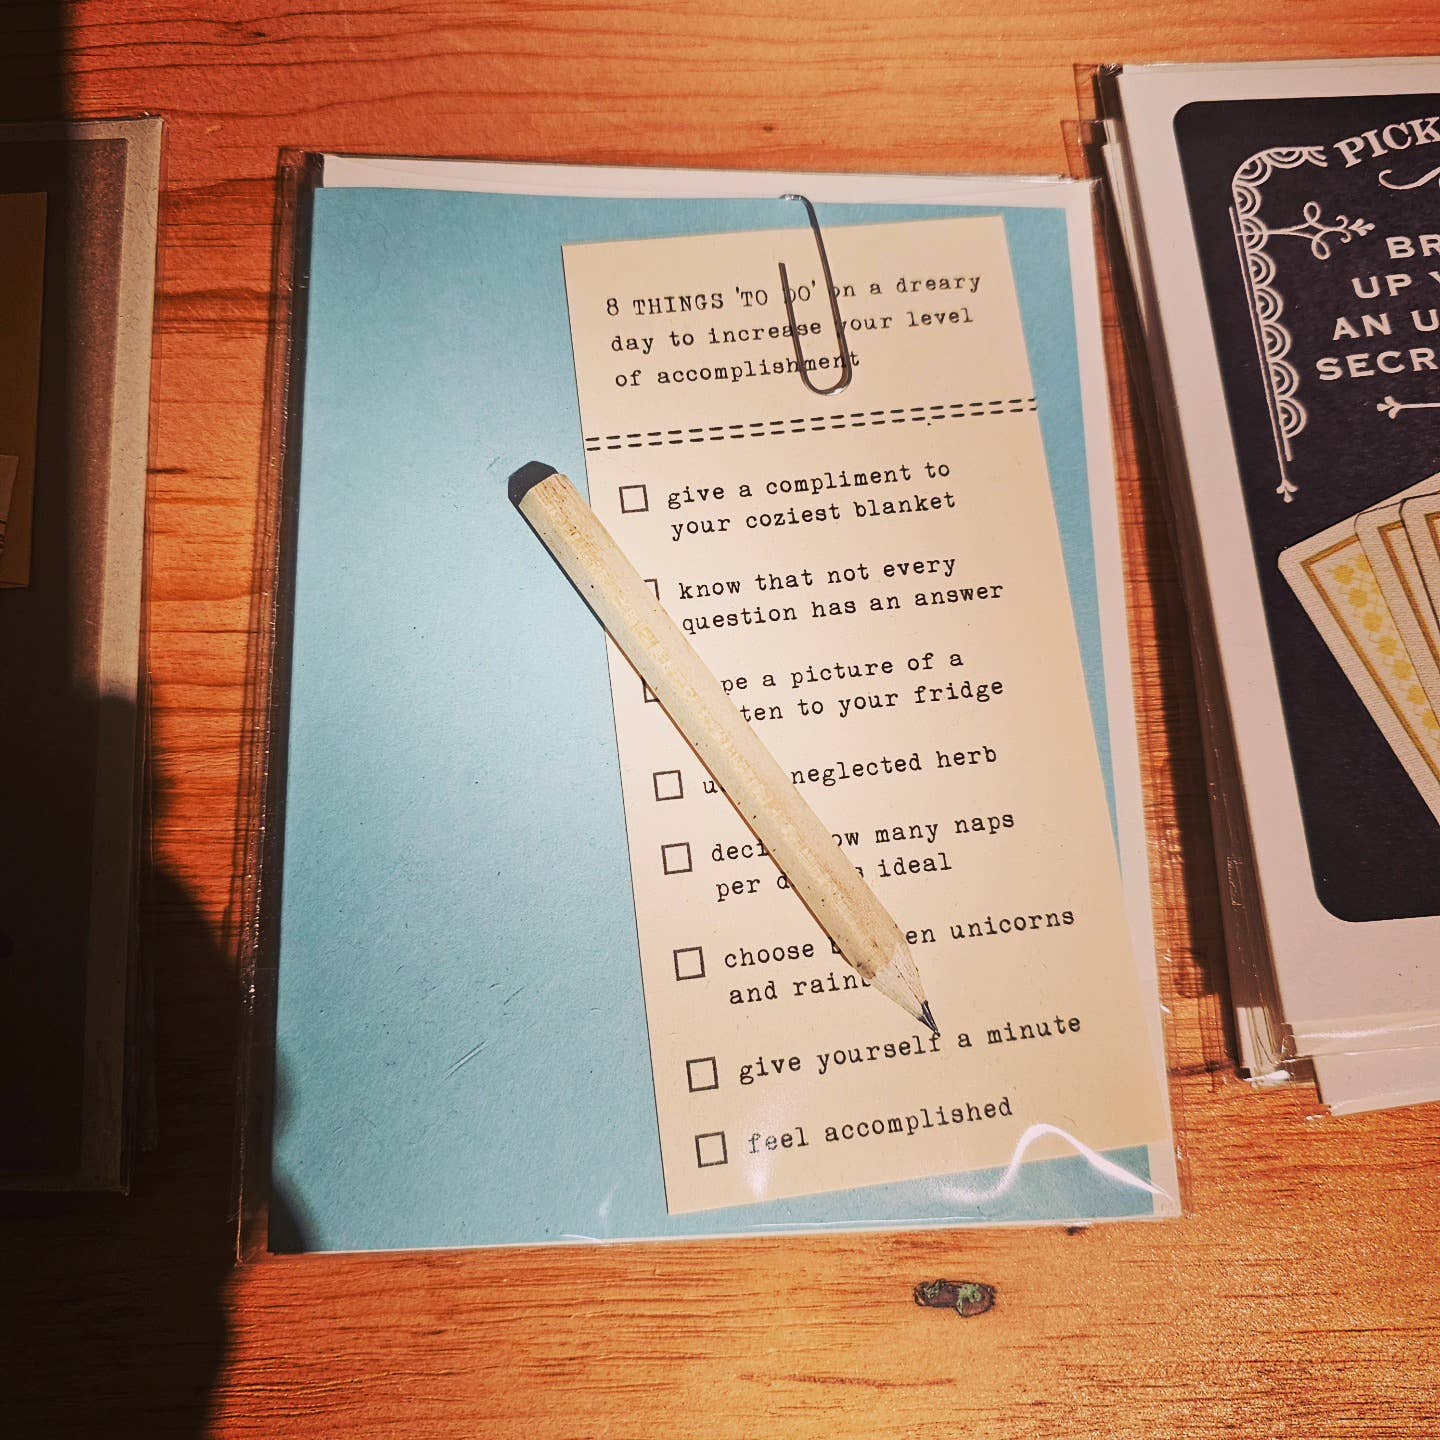 8 THINGS 'TO DO' on a dreary
day to increase your level
of accomplishment
give a compliment to
your coziest blanket
know that not every
question has an answer
a picture of a
to your fridge
neglected herb
many naps
per ideal
choose unicorns
and
give yourself a minute
feel accomplished
PICK
UP
AN